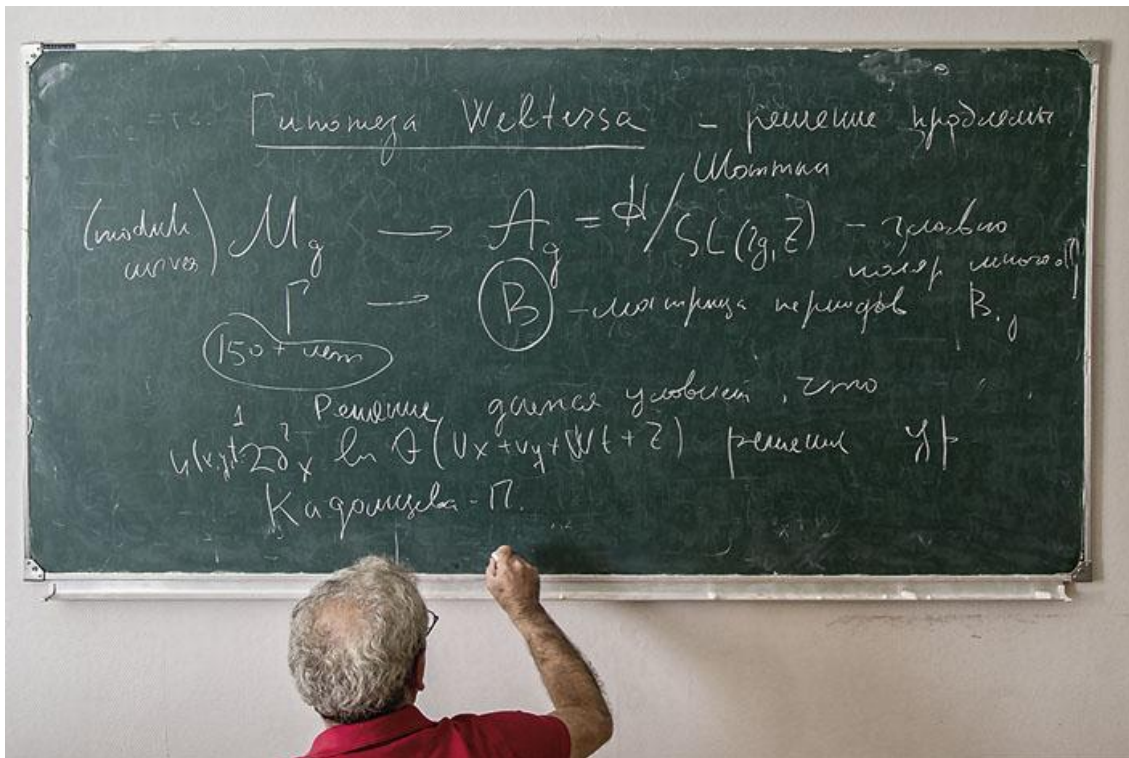 Гипотеза Weltersa – решение проблемы
Шоттки
(moduli curves) M_g → A_g = H/SL(2g, Z) –
Γ → B – матрица периодов B_ij
150+ лет
Решение дается условием, что
u(x,y,t) = 2∂_x^2 ln θ(Ux+Vy+Wt+Z) решение ур
Кадомцева-П.